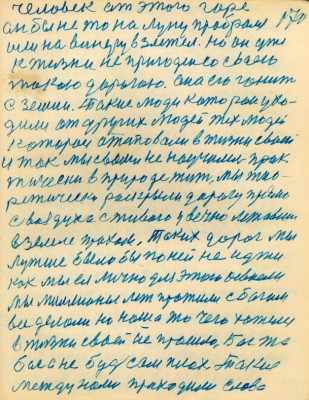 человек от этого горе
он бы не то на луну пробрал
или на винеру взлетел. но он уже
к жизни не пригоден со своею
такою дорогою. она его гонит
с земли. Такие люди которые ухо-
дили от других людей тех людей
которои в жизни своей
и так мы своим не научились прак
тически в природе жит. мы тео-
ретически дорогу прямо
с воздуха с живого у вечно
в земле прахом. Таких дорог мы
лучше было бы по ней не идти
как мы ея лично для этого
мы миллионы лет прожили с богом
все делали но наша то чего хотели
в жизни своей не пришло. Бог то
бог а не будь сам плох. Такие
между нами проходили слова
170